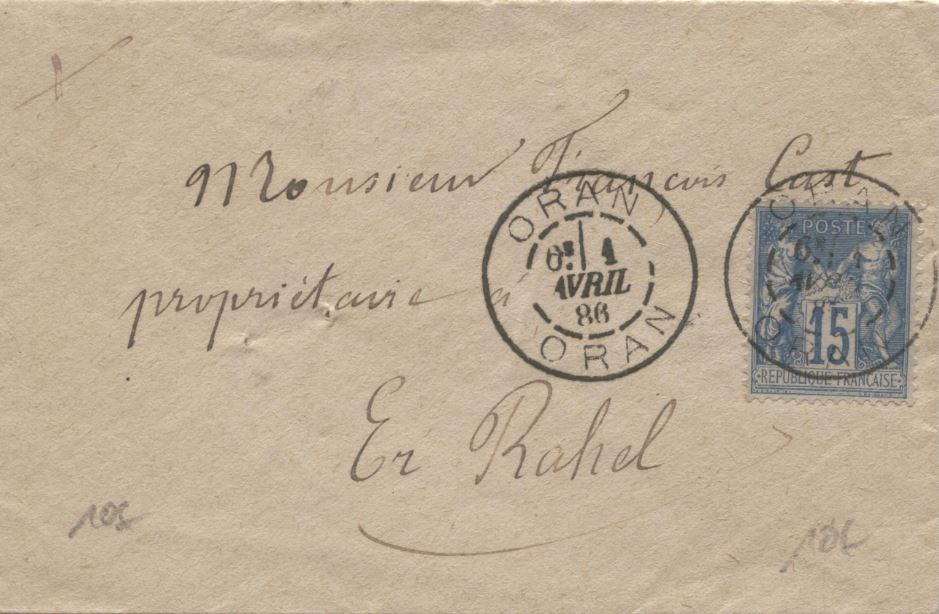 Monsieur François Cast
propriétaire à
Er Rahel
ORAN
6E 1
AVRIL
86
ORAN
ORAN
POSTE
15
REPUBLIQUE FRANÇAISE